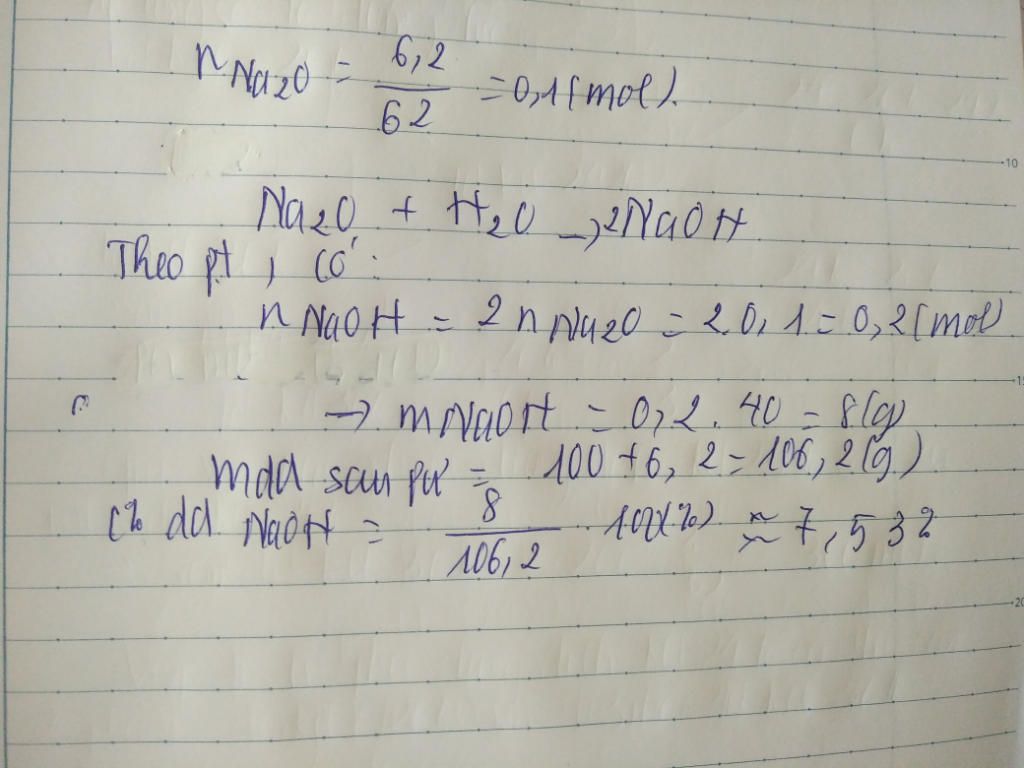 n Na2O = 6,2 / 62 = 0,1 (mol).
Na2O + H2O → 2NaOH
Theo pt, có:
n NaOH = 2 n Na2O = 2.0,1 = 0,2 (mol)
→ m NaOH = 0,2 . 40 = 8 (g)
mdd sau pư = 100 + 6,2 = 106,2 (g)
C% dd NaOH = 8 / 106,2 . 100 (%) ≈ 7,532
10
15
20